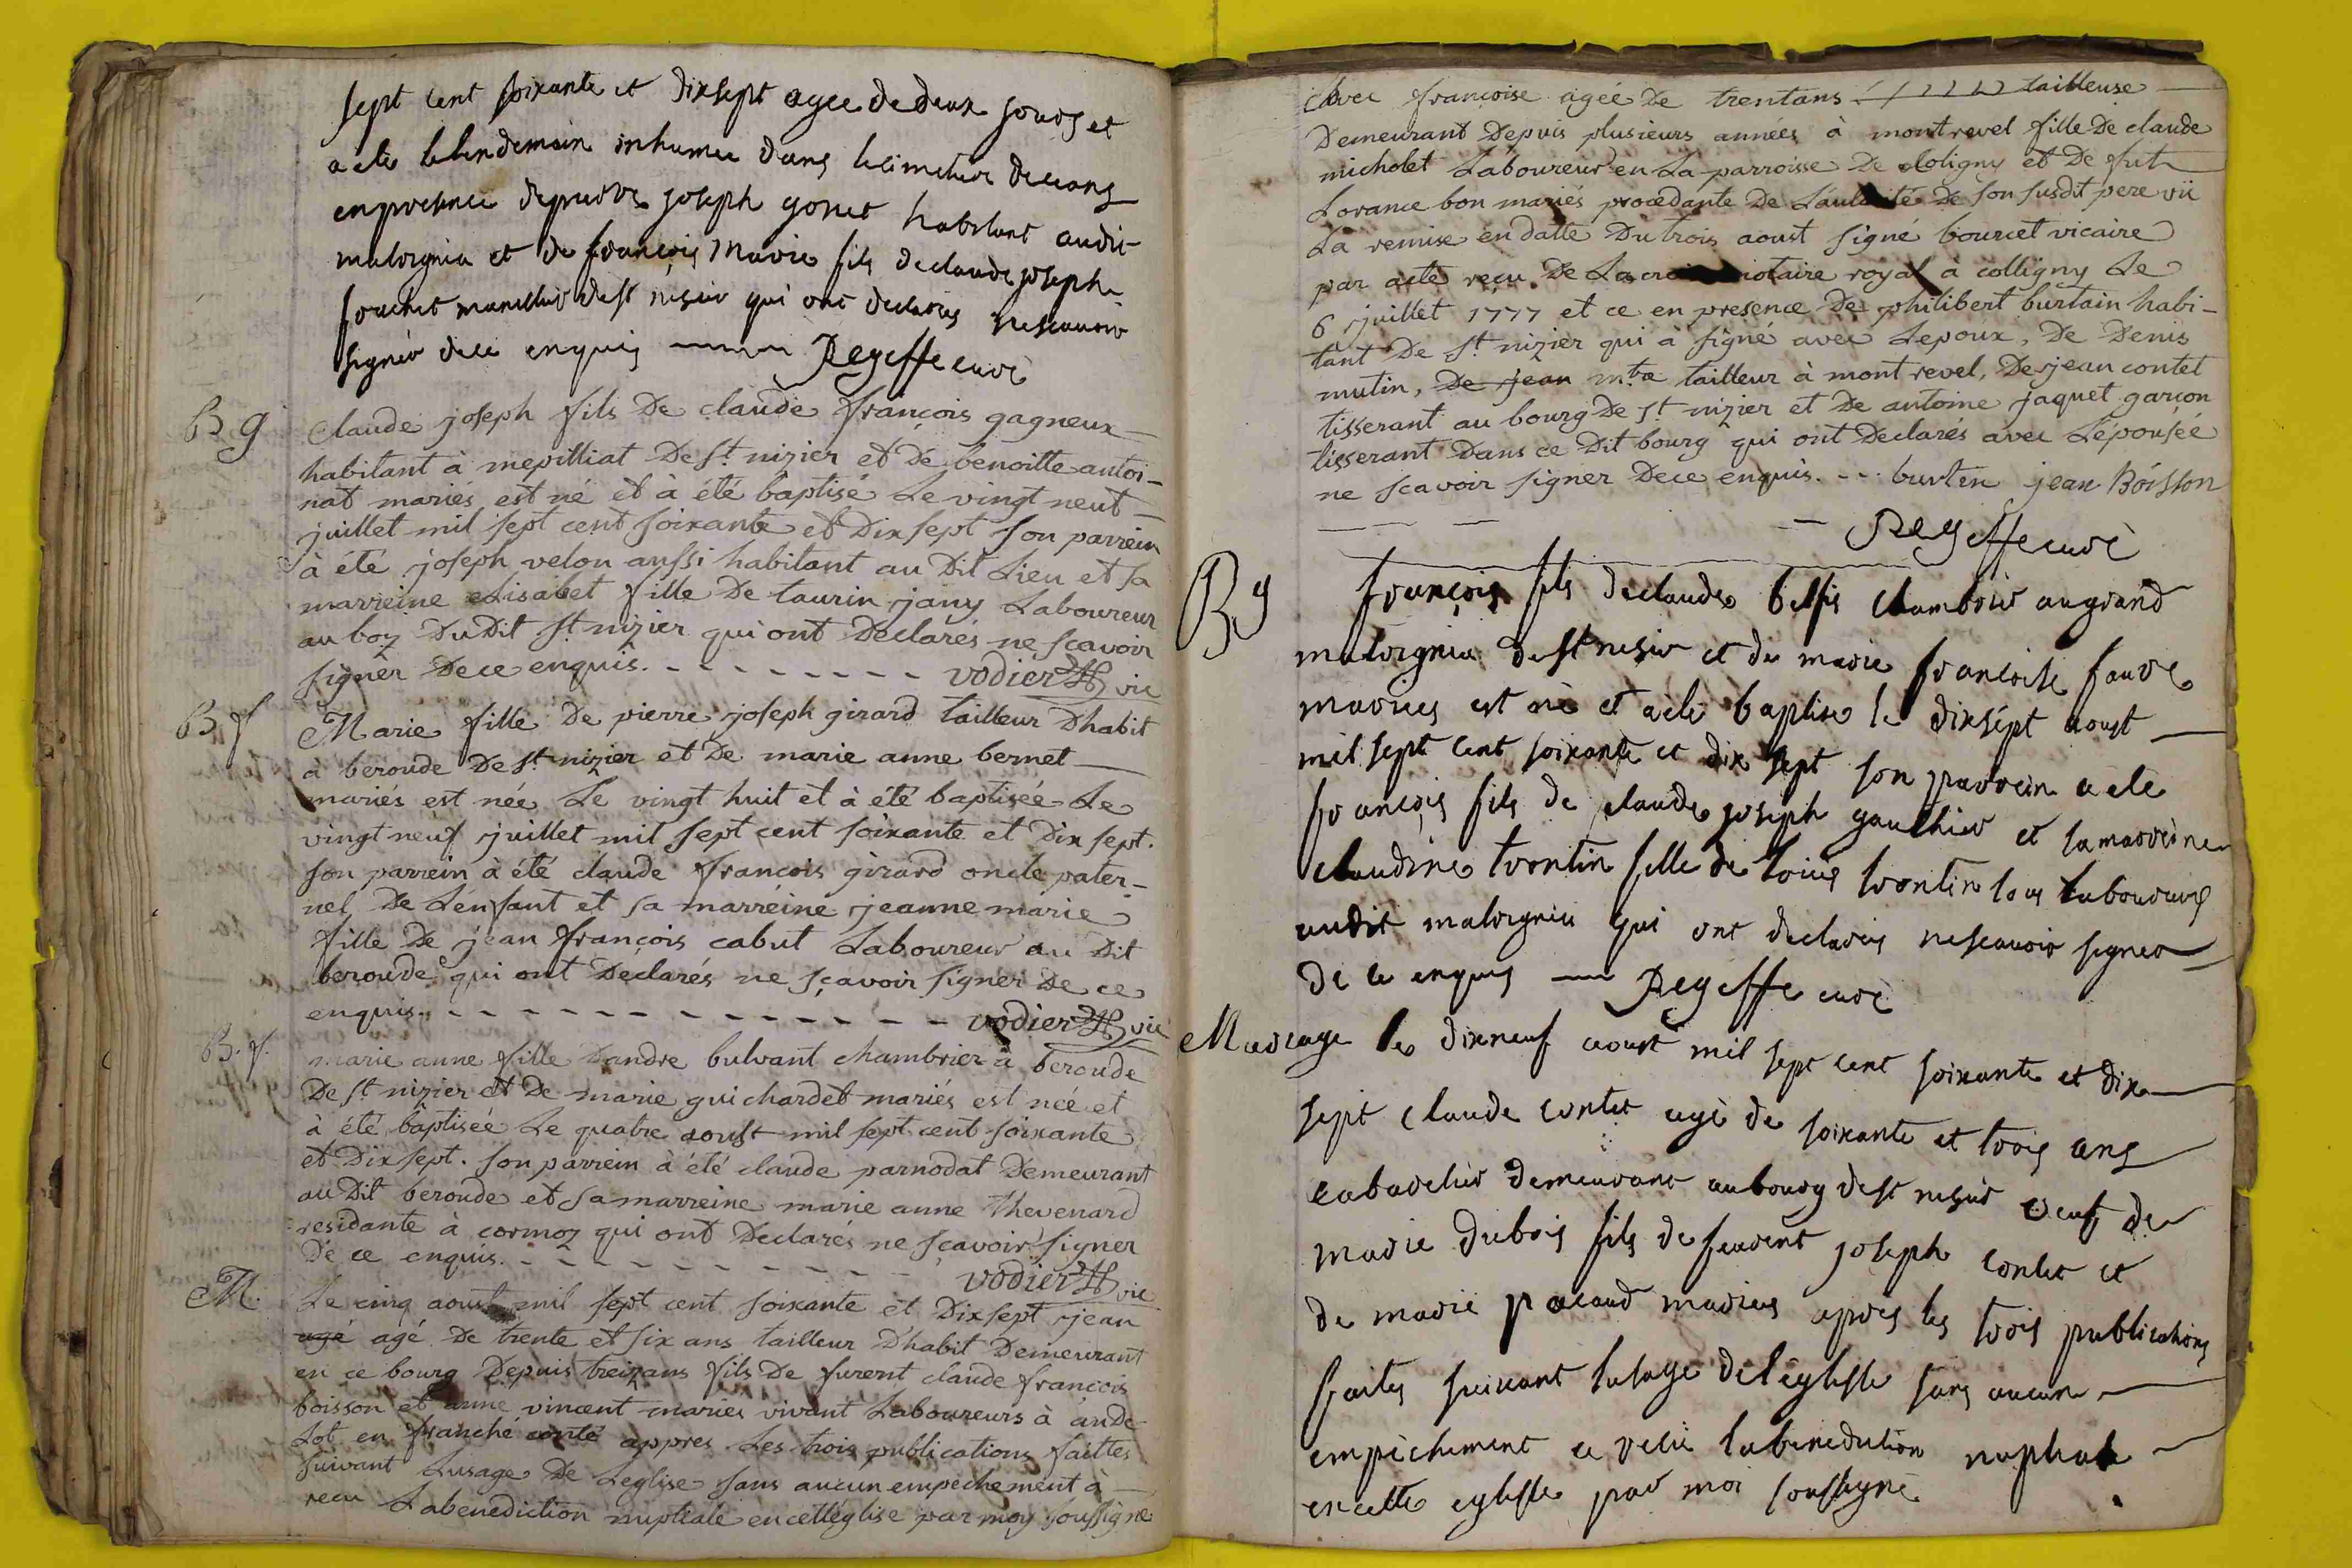 sept cent soixante et dixsept agee de deux jours et
a ete le lendemain inhumee dans le cimetiere deceans
en presence de pierre joseph gonet habitant audit
malvignia et de françois Marie fils de claude joseph
fouchet manellier de st nisier qui ont declares ne scavoir
signer de ce enquis Regeffe curé
B g Claude joseph fils De claude françois gagneux
habitant à mepilliat De st. nizier et De benoitte antoi-
nat mariés est né et à été baptisé Le vingt neuf
juillet mil sept cent soixante et Dix sept son parrein
à été joseph velon aussi habitant au Dit Lieu et sa
marreine elisabet fille De taurin jany Laboureur
au boz Du Dit st. nizier qui ont Declarés ne scavoir
signer De ce enquis. - - - - - - - - vodier vic
B. f Marie fille De pierre joseph girard tailleur Dhabit
a beroude De st. nizier et De marie anne bernet
mariés est née Le vingt huit et à été baptisée Le
vingt neuf juillet mil sept cent soixante et Dix sept.
son parrein à été claude françois girard oncle pater-
nel De Lénfant et sa marréine jeanne marie
fille De jean françois cabut Laboureur au Dit
beroude qui ont Déclarés ne sçavoir signer De ce
enquis. - - - - - - - - - - - - - vodier vic
B. f. marie anne fille Dandre bulvant chambrier à beroude
De st. nizier et De marie guichardet mariés est née et
à été baptisée Le quatre aoust mil sept cent soixante
et Dix sept. son parrein à été claude parnodat Démeurant
au Dit beroude et sa marreine marie anne thevenard
residante à cormoz qui ont Declarés ne sçavoir signer
De ce enquis. - - - - - - - - - - vodier vic
M. Le cinq aoust mil sept cent soixante et Dix sept jean
agé agé De trente et six ans tailleur D'habit Demeurant
en ce bourg Depuis treizans fils De furent claude françois
boisson et anne vincent mariés vivant Laboureurs à ande
Lot en franché conté appres Les trois publications faittes
suivant Lusage De Leglise sans aucun empechement à
reçu La benediction nuptiale en cetteglise par moy soussigné
avec françoise agée De trentans tailleuse
Demeurant Depuis plusieurs années à montrevel fille De claude
micholet Laboureur en La parroisse De coligny et De fut
Lorance bon mariés procedante De Láutorité De son susdit pere vü
La remise en datte Du trois aoust signé bourcet vicaire
par acte reçu De Lacroix notaire royal à colligny Le
6 juillet 1777 et ce en presence De philibert burtain habi-
tant De st. nizier qui à signé avec Lepoux, De Denis
mutin, De jean m.tre tailleur à mont revel, De jean contet
tisserant au bourg De st nizier et De antoine jaquet garçon
tisserant Dans ce Dit bourg qui ont Declarés avec Lépousée
ne sçavoir signer De ce enquis. - - - burten jean Boisson
Regeffe curé
B g françois fils de claude belfis chambrier au grand
malvignia de st nisier et de marie françoise favre
maries est né et a ete baptise le dixsept aoust
mil sept cent soixante et dix sept son parrein a ete
françois fils de claude joseph gauthier et sa marreine
claudine trontin fille de loüis trontin tous laboureurs
audit malvignia qui ont declares ne scavoir signer
de ce enquis Regeffe curé
Mariage le dixneuf aoust mil sept cent soixante et dix
sept claude contet agé de soixante et trois ans
cabaretier demeurant au bourg de st nisier veuf de
marie dubois fils de feurent joseph contet et
de marie pacaud maries apres les trois publications
faites suivant lusage de l'eglisse sans aucun
empechement a recu la benediction nuptiale
en cette eglisse par moi soussigné